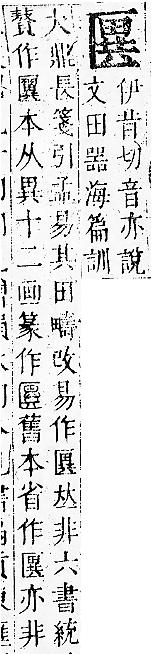 𠥦
伊昔切音亦說
文田器海篇訓
大鼎長箋引孟易其田疇改易作𠥦𠀤非六書統
贊作𠥦本从異十二画篆作𠥦舊本省作𠥦亦非